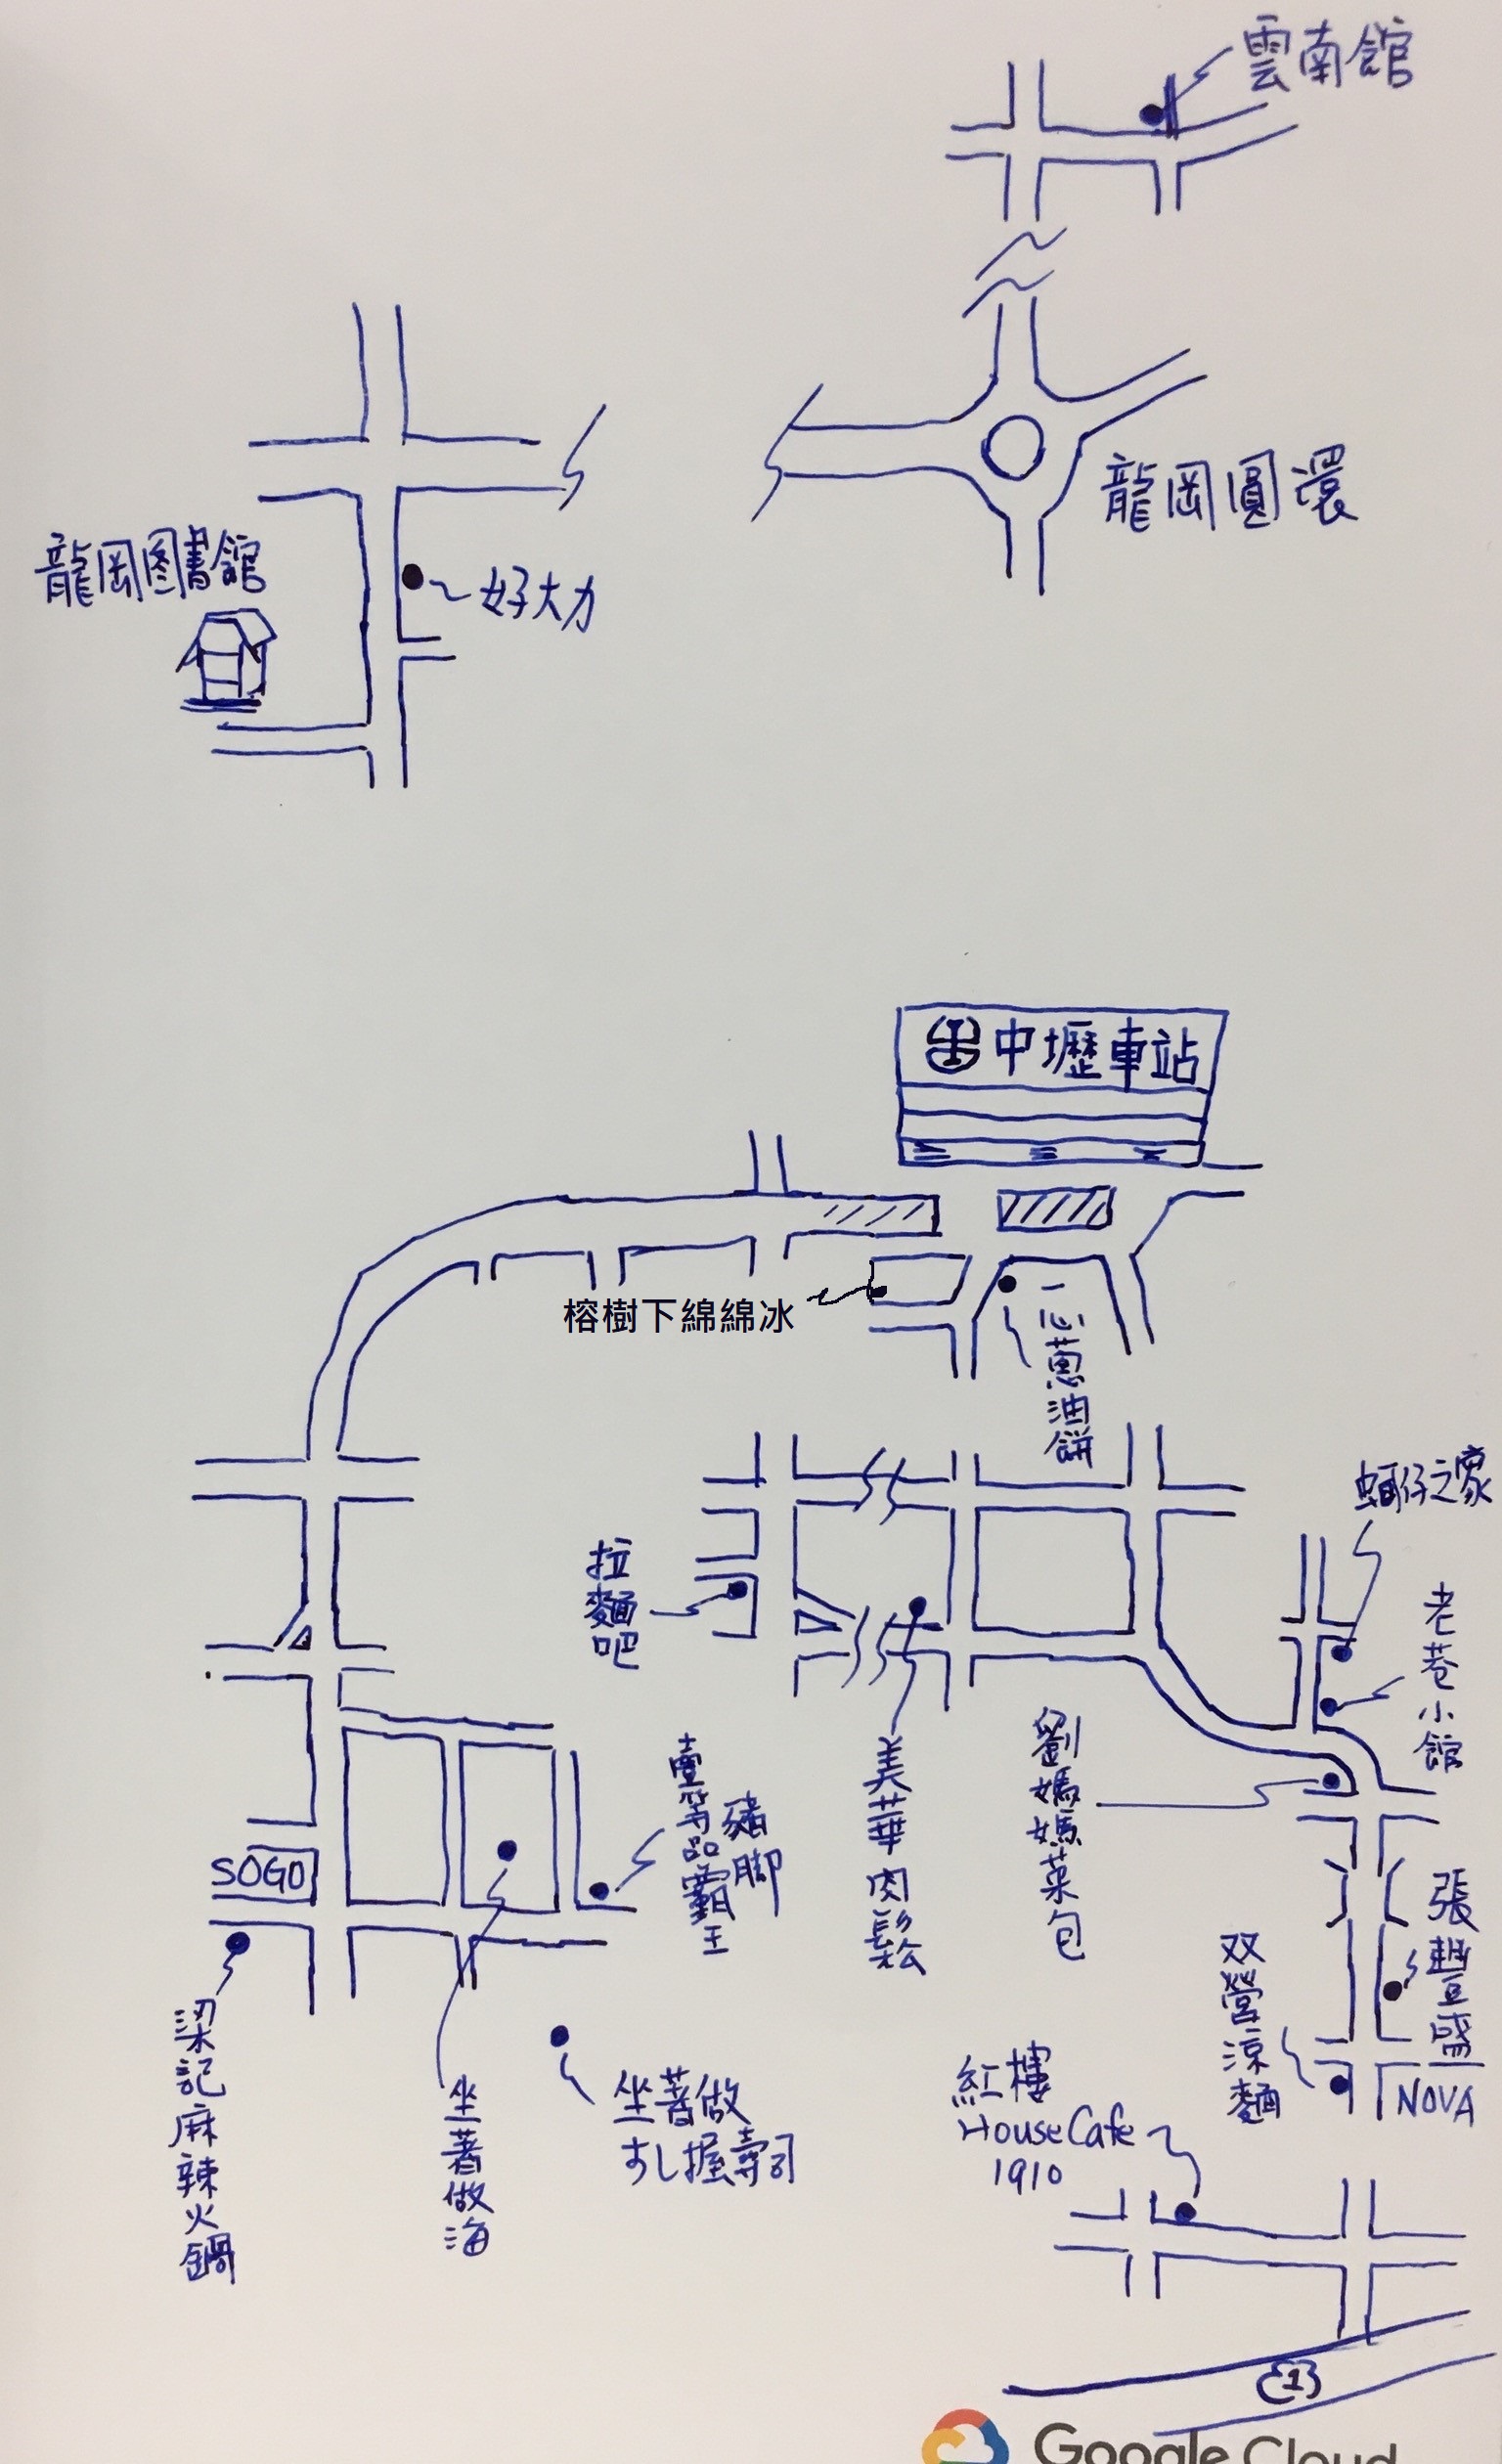 雲南館
龍岡圓環
龍岡图書館
好大力
中壢車站
榕樹下綿綿冰
一心蔥油餅
蚵仔之家
拉麵吧
老巷小館
劉媽媽菜包
美華肉鬆
壹等品霸王
豬腳
SOGO
張豐盛
双營涼麵
梁記麻辣火鍋
坐著做海
坐著做
すし握壽司
紅樓
House Cafe
1910
NOVA
1
Google Cloud